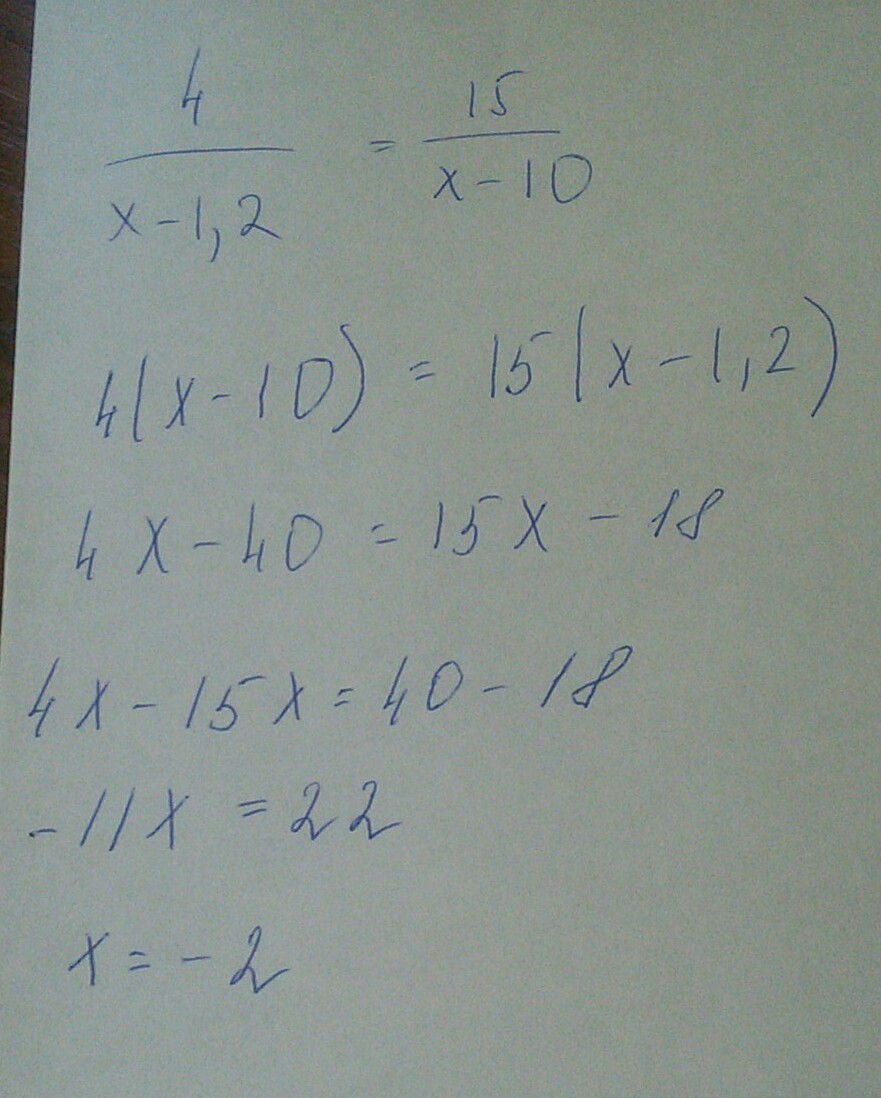 4/(x-1,2) = 15/(x-10)
4(x-10) = 15(x-1,2)
4x-40 = 15x-18
4x-15x = 40-18
-11x = 22
x = -2